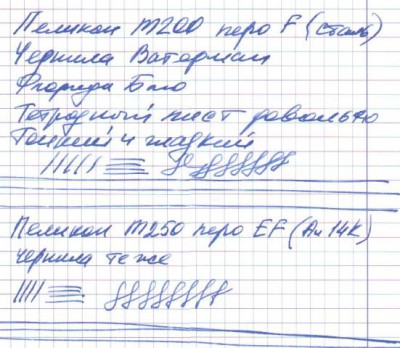 Пеликан M200 перо F (сталь)
Чернила Ватарман
Флорида Блю
Тетрадный лист довольно
Тонкий и гладкий
Пеликан M250 перо EF (Au 14K)
чернила те же